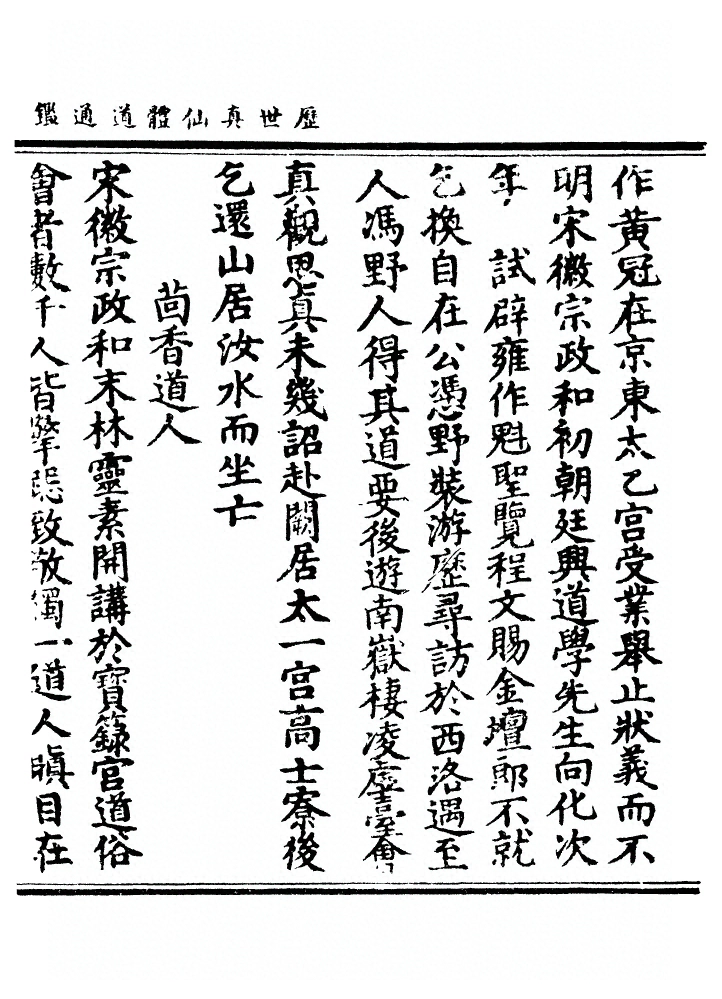 歷世真仙體道通鑑
作黃冠在京東太乙宮受業舉止狀義而不
明宋徽宗政和初朝廷興道學先生向化次
年　試辟雍作魁聖覽程文賜金壇郎不就
乞換自在公憑野裝游歷尋訪於西洛遇至
人馮野人得其道要後遊南嶽棲凌虛臺會
真觀思真未幾詔赴闕居太一宮高士寮後
乞還山居汝水而坐亡
茴香道人
宋徽宗政和末林靈素開講於寶籙宮道俗
會者數千人皆擎跽致敬獨一道人瞋目在